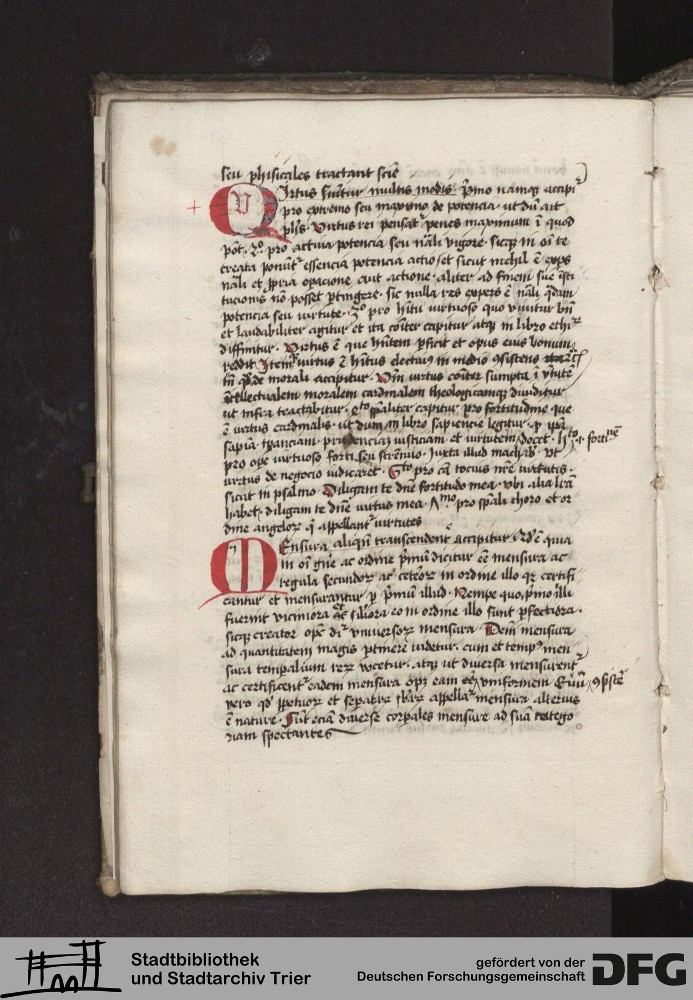 seu phisicales tractant sciē
Irtus sumitur multis modis. p̄mo namqȝ accipiͬ
pro extremo seu maximo de potencia. ut dū ait
phs. Virtus rei pensatͬ penes maximum ī quod
pōt. 2º. pro actiua potencia seu nāli vigore. sicqȝ in oī re
creata ponūtͬ essencia potencia actio, et sicut nichil ē exꝑs
nāli et ꝓpria oꝑacione
tucionis nō posset ꝑtingere. sic nulla res exꝑs ē nāli qᵃdam
potencia seu virtute. 3º pro hītu virtuoso quo viuitur bn̄
et laudabiliter agitur et ita cōiter capitur atqȝ in libro ethiͬ
diffinitur. Virtus ē que hn̄tem ꝑficit et opus eius bonum
reddit. Itemͬ virtus ē hītus electiuꝰ in medio ꝯsistens
de morali accipitur. virtus cōiter sumpta ī v̓tutē
ītellectualem moralem cardinalem theologicamqȝ diuiditur
ut infra tractabitur. sp̄aliter capitur pro fortitudine que
ē virtus cardinalis. ut dum in libro sapiencie legitur. ꝙ
sapīa tꝑanciam. prudenciaȝ iusticiam et virtutem docet.
pro oꝑe virtuoso forti seu strennio. iuxta illud machab. ut
virtus de negocio iudicaret. 6ᵗº pro cā tocius nr̄e virtutis.
sicut in psalmo. Diligam te dn̄e fortitudo mea. vbi alia lr̄a
habet. diligam te dn̄e virtus mea. ᴧᵐº pro sp̄ali choro et or
dine angeloꝝ qͥ appellantͬ virtutes
Ensura aliqn̄ transcendent̓ accipitur. quia
in oī gn̄e ac ordine p̄mū dicitur eē mensura ac
regula secundoꝝ ac ceteroꝝ in ordine illo qȝ certifi
cantur et mensurantur ꝑ p̄mum illud. Nempe quo p̄mo illi
fuerint viciniora siliora eo in ordine illo sunt ꝑfectiora.
sicqȝ creator oꝑē dͬ vniuersoꝝ mensura. Demͫ mensura
ad quantitatem magis ꝑtinere videtur. cum et tempꝰ men
sura temꝑalium reꝝ vocetur. atqȝ ut diuersa mensurentͬ
ac certificentͬ eadem mensura opȝ eam eē vniformem
vero qd̓ ꝑpetuoꝝ et seꝑatoꝝ appellatͬ mensura alterius
ē nature. Sūt eciā diuerse corꝑales mensure ad suā catego
riam spectantes
Stadtbibliothek
und Stadtarchiv Trier
gefördert von der
Deutschen Forschungsgemeinschaft
DFG